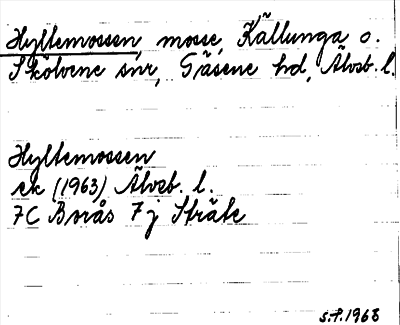 Hyltemossen, mosse, Källunga o.
Skölvene snr, Gäsene hd, Älvsb. l.
Hyltemossen
ek (1963) Älvsb. l.
7C Borås 7j Sträte
s.f. 1968